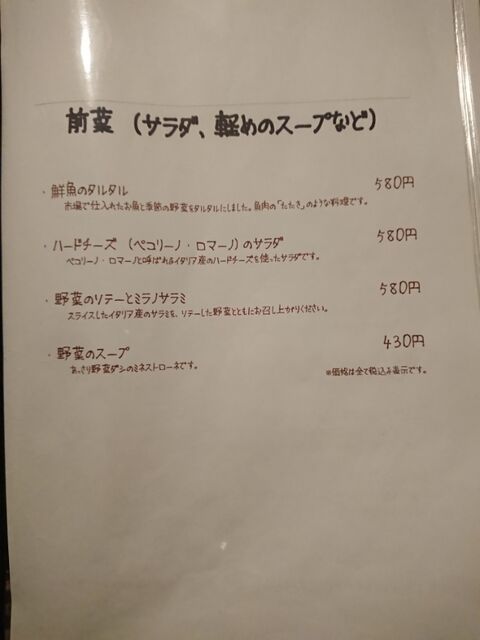 前菜 (サラダ、軽めのスープなど)
・鮮魚のタルタル 580円
市場で仕入れたお魚と季節の野菜をタルタルにしました。魚肉の「たたき」のような料理です。
・ハードチーズ (ペコリーノ・ロマーノ)のサラダ 580円
ペコリーノ・ロマーノと呼ばれるイタリア産のハードチーズを使ったサラダです。
・野菜のリテーとミラノサラミ 580円
スライスしたイタリア産のサラミを、リテーした野菜とともにお召し上がりください。
・野菜のスープ 430円
あっさり野菜ダシのミネストローネです。 ※価格は全て税込み表示です。